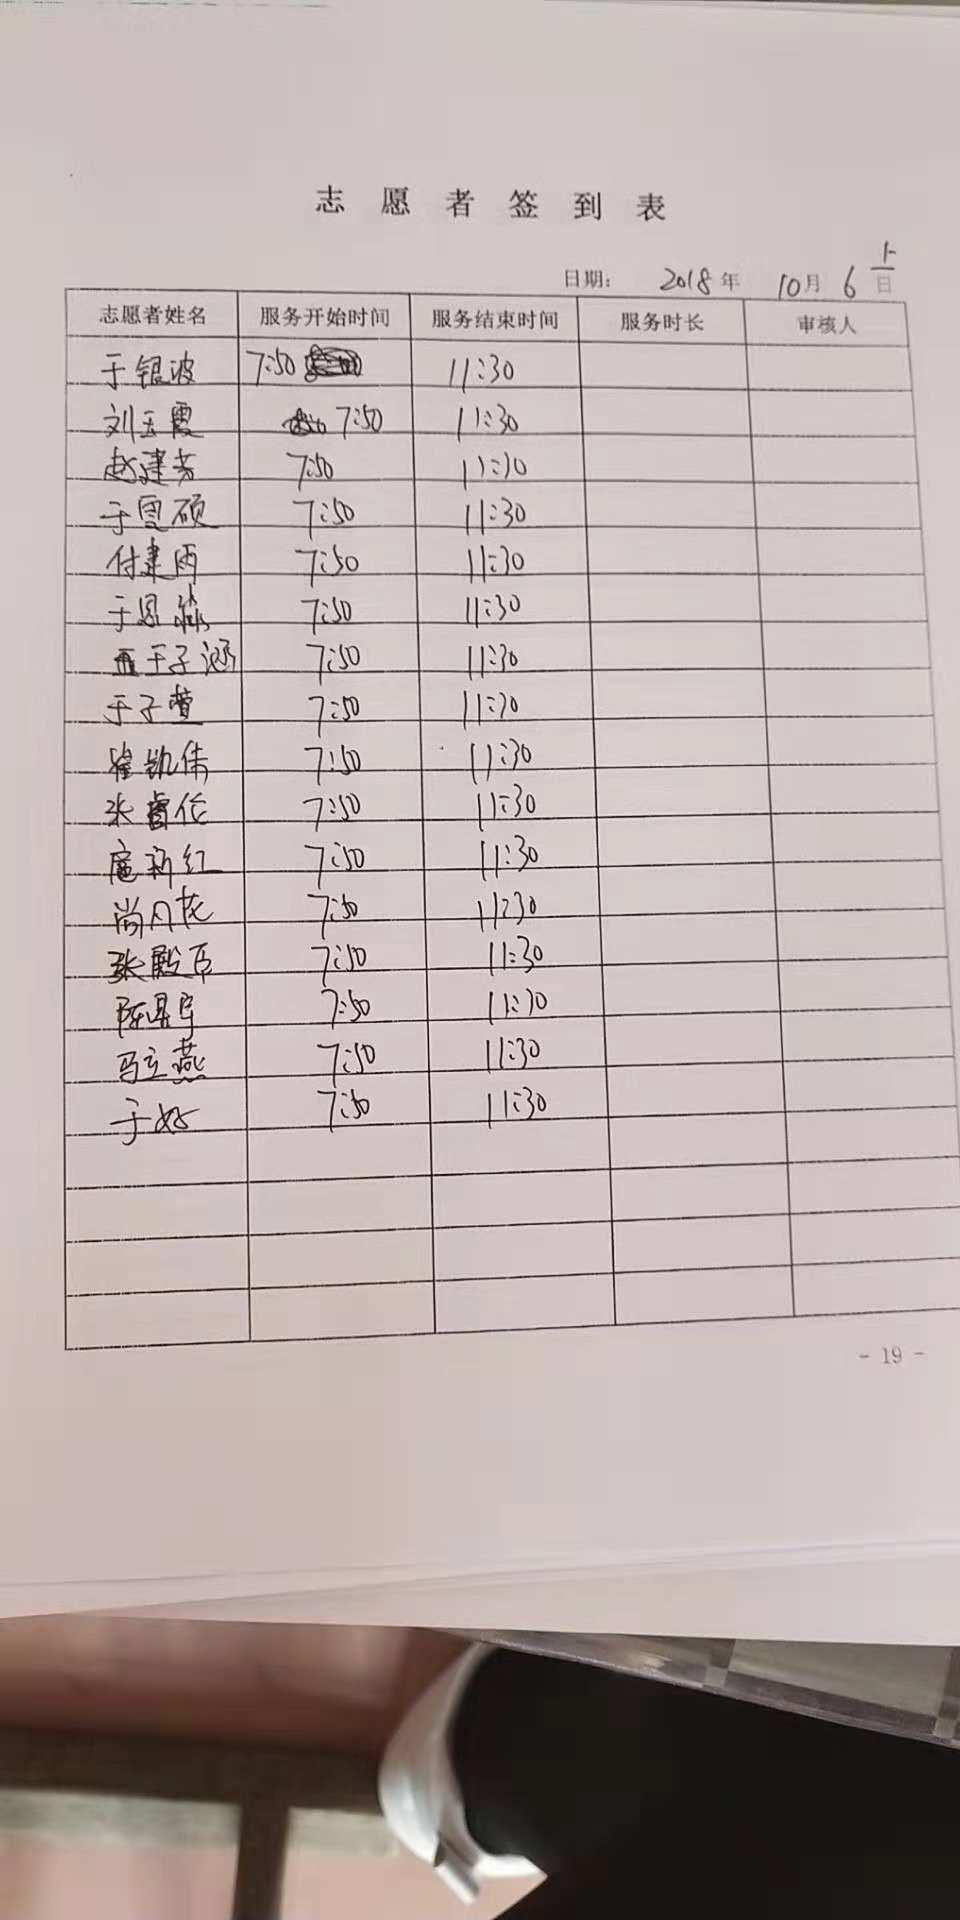 志愿者签到表
上
日期: 2018年 10月 6日
志愿者姓名 服务开始时间 服务结束时间 服务时长 审核人
于银波 7:50 11:30
刘玉霞 7:50 11:30
赵建芳 7:50 11:30
于雪硕 7:50 11:30
付建雨 7:50 11:30
于恩 7:50 11:30
王子涵 7:50 11:30
于子萱 7:50 11:30
翟凯伟 7:50 11:30
张睿伦 7:50 11:30
扈新红 7:50 11:30
尚月花 7:50 11:30
张殿臣 7:50 11:30
陈 7:50 11:30
马立燕 7:50 11:30
于姣 7:50 11:30
- 19 -